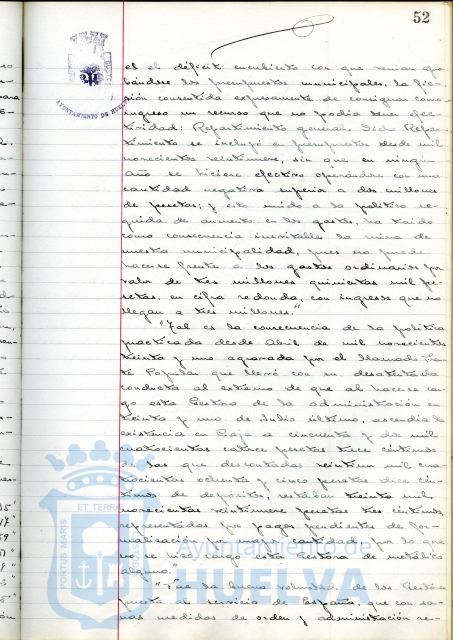 52
AYUNTAMIENTO DE HUELVA
es el déficit encubierto con que venían apro-
bándose los presupuestos municipales, la fic-
ción consentida expresamente de consignar como
ingreso un recurso que no podía tener efec-
tividad: Repartimiento general. Dicho Repar-
timiento se incluyó en presupuestos desde mil
novecientos veintinueve, sin que en ningún
año se hiciese efectivo operándose con una
cantidad negativa superior a dos millones
de pesetas; y ésto unido a la política se-
guida de aumento en los gastos, ha traído
como consecuencia inevitable la ruina de
nuestra municipalidad, pues no puede
hacerse frente a los gastos ordinarios por
valor de tres millones quinientas mil pe-
setas, en cifra redonda, con ingresos que no
llegan a tres millones."
"Tal es la consecuencia de la política
practicada desde Abril de mil novecientos
treinta y uno agravada por el llamado Fren-
te Popular que llevó con su desatentada
conducta al extremo de que al hacerse car-
go esta Gestora de la administración en
treinta y uno de Julio último, ascendía la
existencia en Caja a cincuenta y dos mil
cuatrocientas catorce pesetas trece céntimos
de las que descontadas veintiun mil cua-
trocientas ochenta y cinco pesetas diez cén-
timos de depósitos, restaban treinta mil
novecientas veintinueve pesetas tres céntimos
representadas por pagos pendientes de for-
malización por mayor cantidad, por lo que
no se hizo cargo esta Gestora de metálico
alguno."
"Fue la buena voluntad de los Gestores
puesta al servicio de España, que con sa-
nas medidas de orden y administración re-
ET TERRAE
PORTUS MARIS
Ayuntamiento de
HUELVA